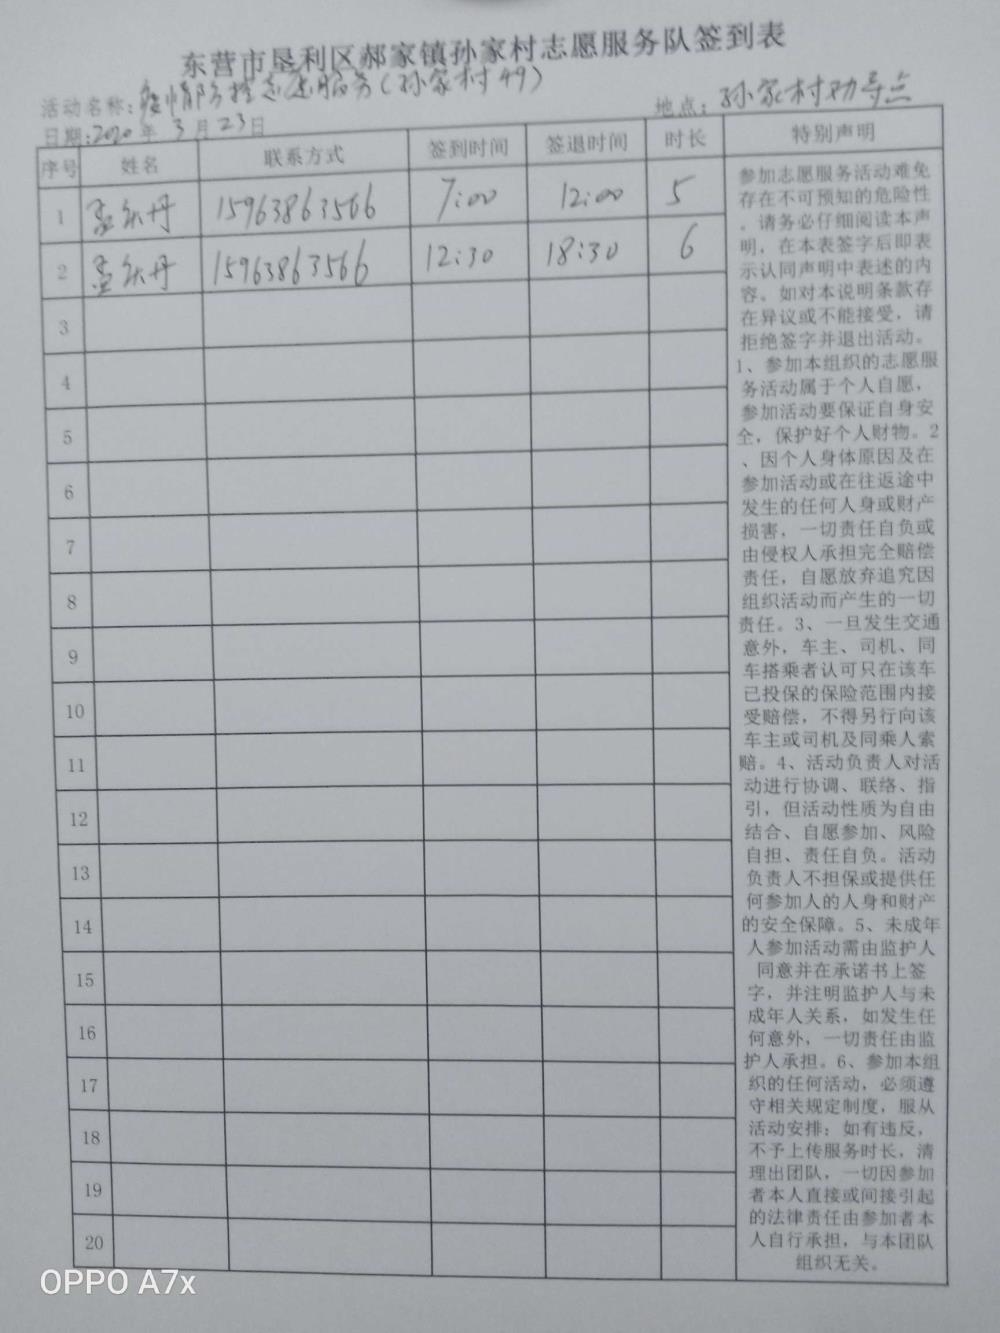 东营市垦利区郝家镇孙家村志愿服务队签到表
活动名称：疫情防控志愿服务（孙家村49）
地点：孙家村劝导点
日期：2020年3月23日
序号 姓名 联系方式 签到时间 签退时间 时长 特别声明
1 孟 丹 15963863566 7:00 12:00 5
2 孟 丹 15963863566 12:30 18:30 6
3
4
5
6
7
8
9
10
11
12
13
14
15
16
17
18
19
20
参加志愿服务活动难免
存在不可预知的危险性
，请务必仔细阅读本声
明，在本表签字后即表
示认同声明中表述的内
容。如对本说明条款存
在异议或不能接受，请
拒绝签字并退出活动。
1、参加本组织的志愿服
务活动属于个人自愿，
参加活动要保证自身安
全，保护好个人财物。2
、因个人身体原因及在
参加活动或在往返途中
发生的任何人身或财产
损害，一切责任自负或
由侵权人承担完全赔偿
责任，自愿放弃追究因
组织活动而产生的一切
责任。3、一旦发生交通
意外，车主、司机、同
车搭乘者认可只在该车
已投保的保险范围内接
受赔偿，不得另行向该
车主或司机及同乘人索
赔。4、活动负责人对活
动进行协调、联络、指
引，但活动性质为自由
结合、自愿参加、风险
自担、责任自负。活动
负责人不担保或提供任
何参加人的人身和财产
的安全保障。5、未成年
人参加活动需由监护人
同意并在承诺书上签
字，并注明监护人与未
成年人关系，如发生任
何意外，一切责任由监
护人承担。6、参加本组
织的任何活动，必须遵
守相关规定制度，服从
活动安排；如有违反，
不予上传服务时长，清
理出团队，一切因参加
者本人直接或间接引起
的法律责任由参加者本
人自行承担，与本团队
组织无关。
OPPO A7x